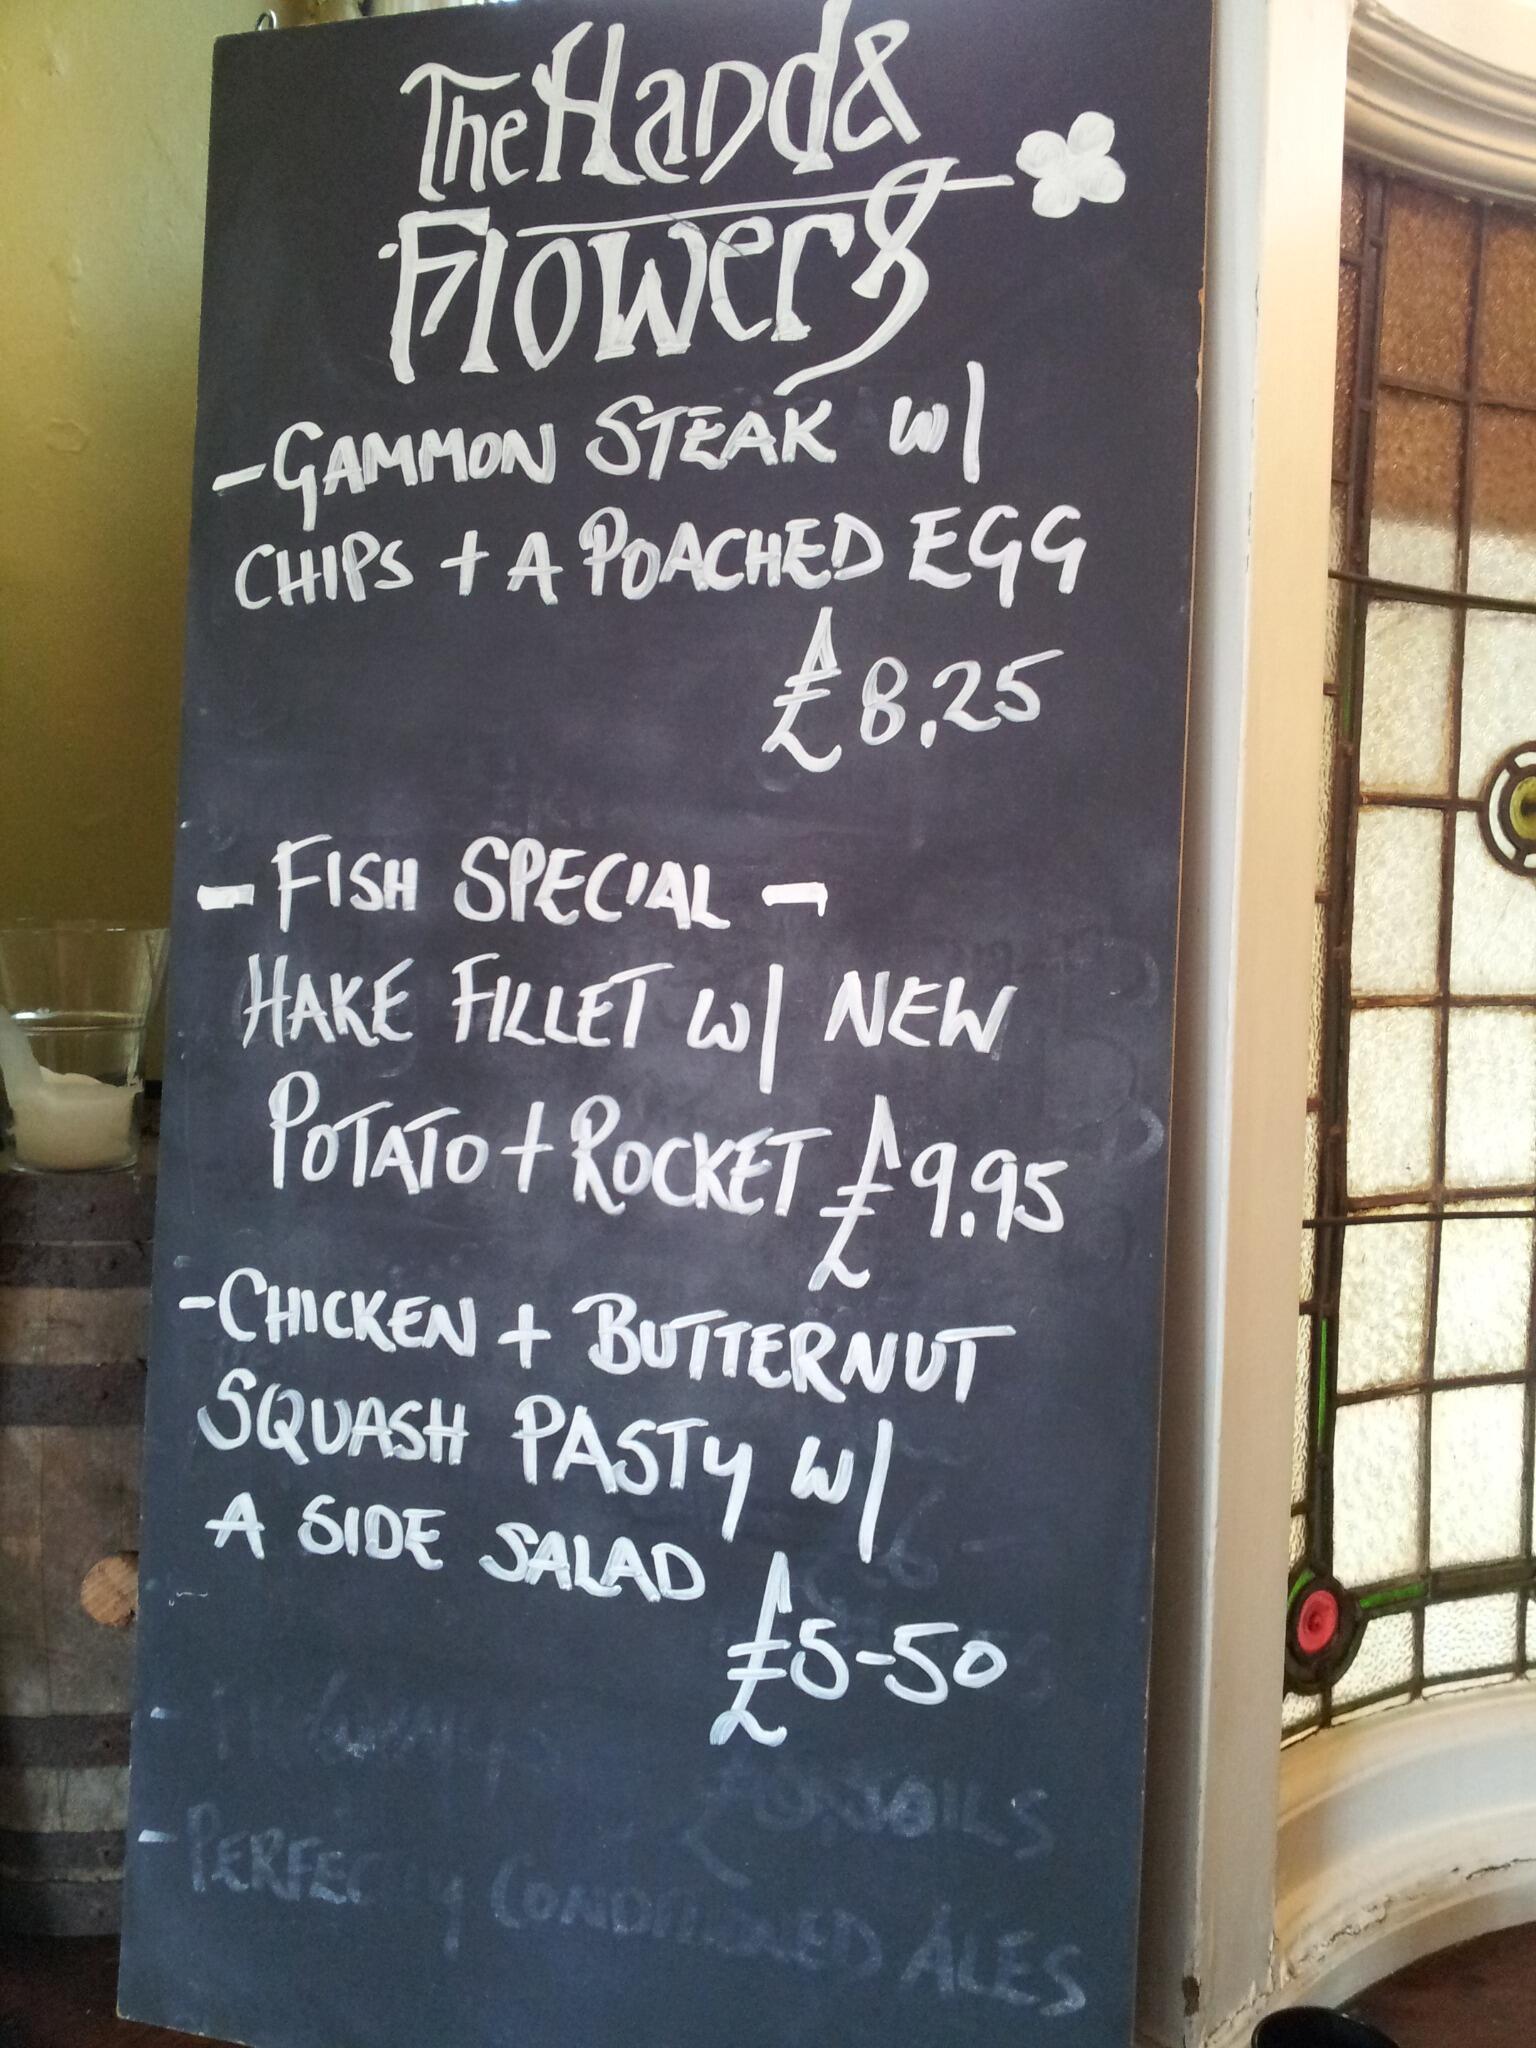 The Hand &
Flowers
- GAMMON STEAK w/
CHIPS + A POACHED EGG
£8.25
- FISH SPECIAL -
HAKE FILLET w/ NEW
POTATO + ROCKET £9.95
- CHICKEN + BUTTERNUT
SQUASH PASTY w/
A SIDE SALAD
£5-50
- CONDITIONED ALES